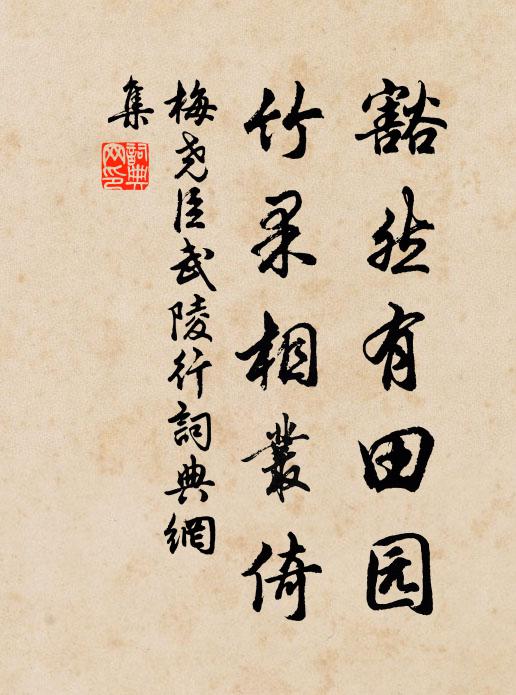 豁然有田园
竹果相叢倚
梅尧臣武陵行詞典網
集
詞典
网印